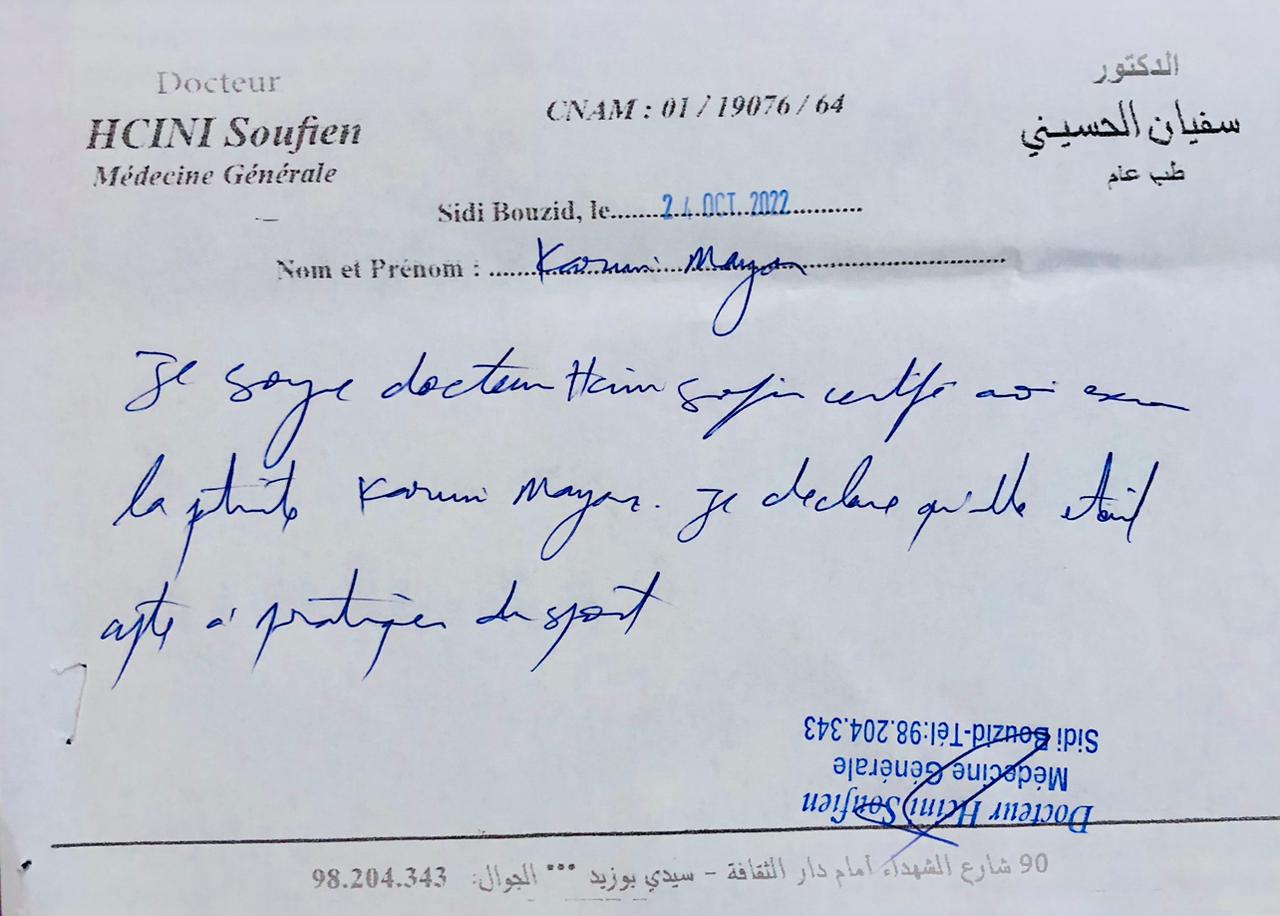 Docteur
HCINI Soufien
Médecine Générale
CNAM : 01 / 19076 / 64
الدكتور
سفيان الحسيني
طب عام
Sidi Bouzid, le.......24 OCT. 2022............
Nom et Prénom : ......Karimi Mayar..............................
Je docteur Hcini certifie
la Karimi Mayar. Je declare qu'elle etait
apte à pratiquer du sport
Docteur Hcini Soufien
Médecine Générale
Sidi Bouzid-Tél:98.204.343
90 شارع الشهداء أمام دار الثقافة – سيدي بوزيد *** الجوال: 98.204.343